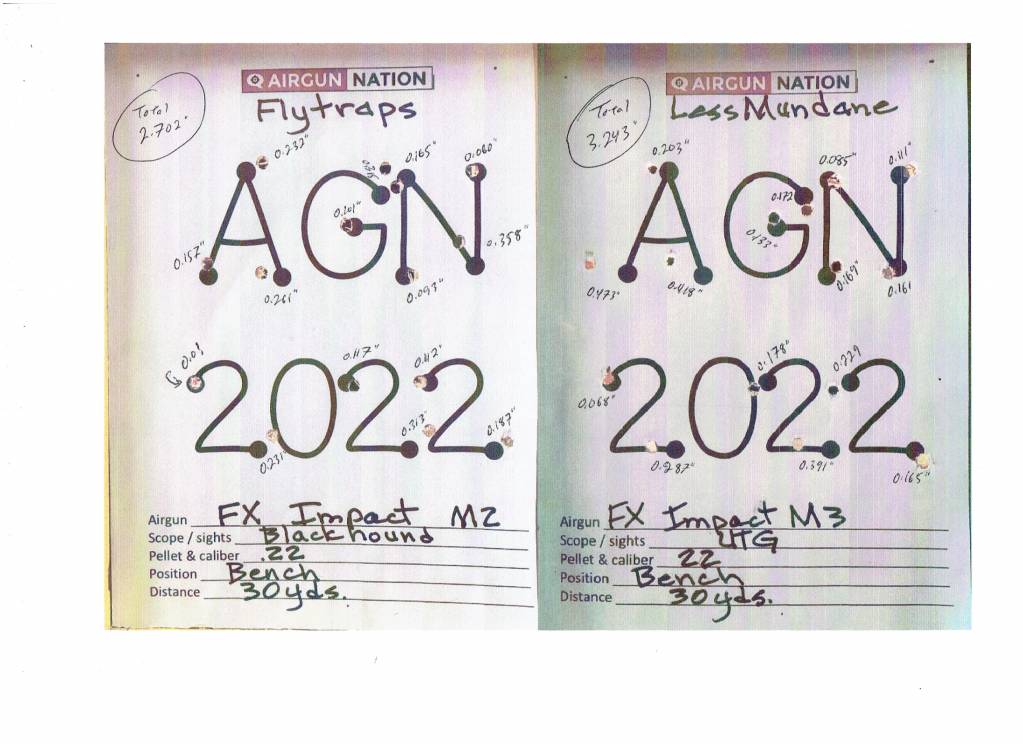 AIRGUN NATION
Flytraps
Total
2.702"
0.232"
0.165"
0.060"
0.101"
0.157"
0.261"
0.093"
0.358"
AGN
0.01
0.117"
0.112"
0.313"
0.187"
0.231"
2022
Airgun FX Impact M2
Scope / sights Blackhound
Pellet & caliber .22
Position Bench
Distance 30 yds.
AIRGUN NATION
LessMundane
Total
3.243"
0.203"
0.085"
0.111"
0.172
0.133"
0.473"
0.418"
0.169"
0.161
AGN
0.068"
0.178"
0.229
0.287"
0.391"
0.165"
2022
Airgun FX Impact M3
Scope / sights UTG
Pellet & caliber 22
Position Bench
Distance 30 yds.